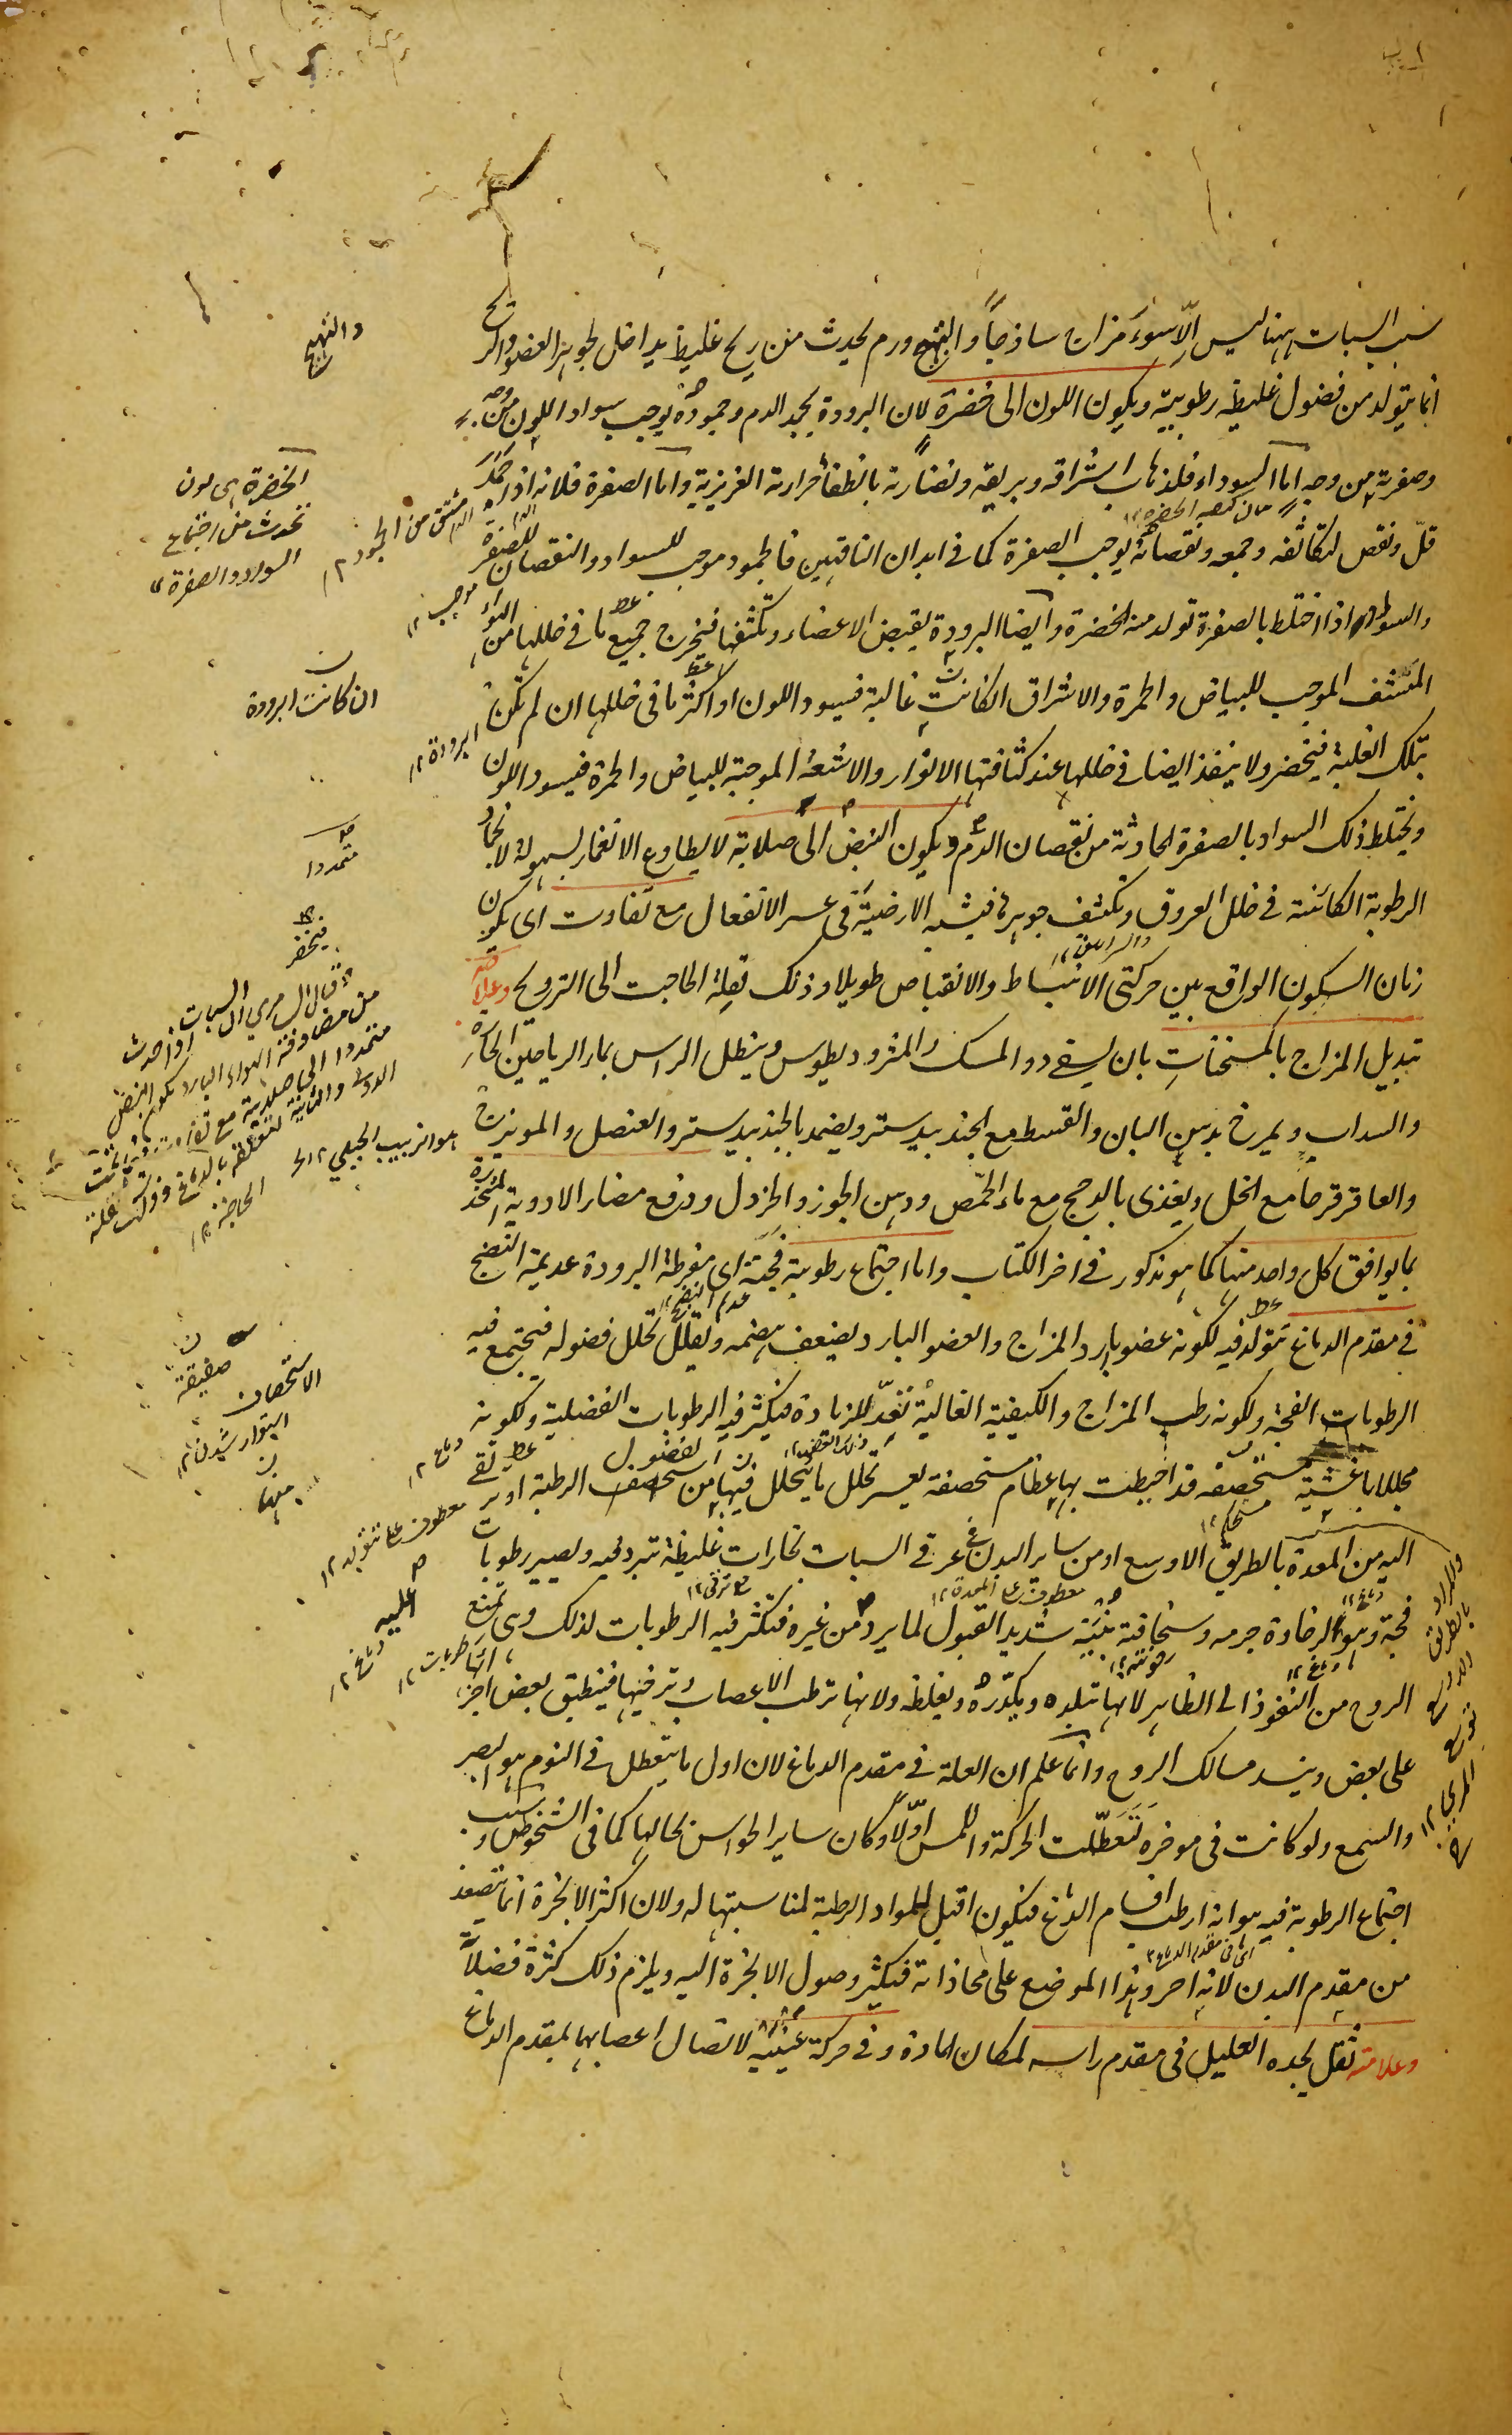 سبب السبات ههنا ليس الّا سوءَ مزاج ساذجاً والتهيج ورم يحدث من ريح غليظ يداخل لجوهر العضو والريح
انما يتولد من فضول غليظه رطوبية ويكون اللون الى خضرة لان البرودة يجمد الدم وجموده يوجب سواد اللون من وجه
وصفرته من وجه اما السوداء فلذهاب اشراقه وبريقه ونضارته بانطفاء حرارته الغريزية واما الصفرة فلانه اذا جمد
قلّ ونقص لتكاثفه وجمعه ونقصانه يوجب الصفرة كما فى ابدان الناقهين فالجمود موجب للسواد والنقصان للصفرة
والسواد اذا اختلط بالصفرة تولد منه الخضرة وايضا البرودة يقبض الاعضاء وتكثفها فيخرج جميع ما فى خللها من الهواء
المشف الموجب للبياض والحمرة والاشراق ان كانت غالبة فيسود اللون او اكثر ما فى خللها ان لم تكن
بتلك الغلبة فيخضر ولا ينفذ ايضا فى خللها عند كثافتها الانوار والاشعة الموجبة للبياض والحمرة فيسود اللون
ويختلط ذلك السواد بالصفرة الحادثة من نقصان الدم ويكون النبض الى صلابة لا يطاوع الانغماز بسهولة لانجماد
الرطوبة الكائنة فى خلل العروق وتكثف جوهرها فيشبه الارضيّة فى عسر الانفعال مع تفاوت اى يكون
زمان السكون الواقع بين حركتى الانبساط والانقباض طويلا وذلك لقلة الحاجت الى الترويح وعلاجه
تبديل المزاج بالمسخنات بان يسقے دواء المسك والمثروديطوس وينطل الراس بماء الرياحين الحارة
والسداب ويمرخ بدهن البان والقسط مع الجندبيدستر ويضمد بالجندبيدستر والعنصل والمويزج
والعاقرقرحا مع الخل ويغذى بالدجج مع ماء الحمّص ودهن الجوز والخردل ودفع مضار الادوية المخدرة
بما يوافق كل واحد منها كما هو مذكور فى اخر الكتاب واما اجتماع رطوبة فجّة اى مفرطة البرودة عديمة النضج
فى مقدم الدماغ تتولد فيه لكونه عضو بارد المزاج والعضو البارد يضعف هضمه ويقلل تحلل فضوله فيجتمع فيه
الرطوبات الفجة ولكونه رطب المزاج والكيفية الغالبة تعدّ للزيادة فيكثر فيه الرطوبات الفضلية ولكونه
مجللا باغشية مستحصفه قد احيطت بها عظام مستحصفة يعسر تحلل ما يتحلل فيها من الفضول الرطبة او يرتقے
اليه من المعدة بالطريق الاوسع او من ساير البدن فى عرقى السبات بخارات غليظة تبرد فيه ويصير رطوبات
فجة وهو لرخاوة جرمه وسخافة بنيته شديد القبول لما يرد من غيره فتكثر فيه الرطوبات لذلك وهى تمنع
الروح من النفوذ الى الظاهر لانها تبلده ويكدّره ويغلظه ولانها ترطب الاعصاب وترخيها فينطبق بعض اجزائها
على بعض وينسد مسالك الروح وانما علم ان العلة فى مقدم الدماغ لان اول ما يتعطل فى النوم هو البصر
والسمع ولو كانت فى موخره لتعطّلت الحركة واللمس اوّلًا وكان ساير الحواس بحالها كما فى الشخوص وسبب
اجتماع الرطوبة فيه هو انه ارطب اقسام الدماغ فيكون اقبل للمواد الرطبة لمناسبتها له ولان اكثر الابخرة انما يتصعد
من مقدم البدن لانه احر وهذا الموضع على محاذاته فيكثر وصول الابخرة اليه ويلزم ذلك كثرة فضلاته
وعلامته ثقل يجده العليل فى مقدم راسه لمكان المادة وفى حركة عينيه لاتصال اعصابها بمقدم الدماغ
والتهيج
الخضرة هى لون
تحدث من اجتماع
السواد والصفرة ١٢
مشتق من الجمود ١٢
موجب ١٢
ان كانت البرودة
البرودة ١٢
متمددا
فيخضر
قال السامرى ان السبات اذا حدث
من مصادفة الهواء البارد يكون النبض
متمددا الى صلابة مع تفاوت
هو الزبيب الجبلى ١٢
الحاجة ١٢
صفيقة
الاستحصاف
استوار شدن ١٢
معطوف على تتولد ١٢
اليه
دماغ ١٢
عدم النضج ١٢
مستحكم ١٢
معطوف على المعدة ١٢
والمراد
بالطريق
الاوسع
المرى ١٢
اى فى مقدم الدماغ ١٢